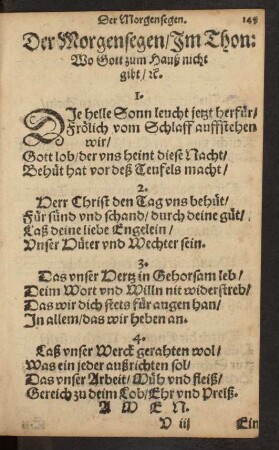 Der Morgensegen. 145
Der Morgensegen/Jm Thon:
Wo Gott zum Hauß nicht
gibt/ ꝛc.
1.
DJe helle Sonn leucht jetzt herfür/
Frölich vom Schlaff auffstehen
wir/
Gott lob/der vns heint diese Nacht/
Behüt hat vor deß Teufels macht/
2.
Herr Christ den Tag vns behüt/
Für sünd vnd schand/durch deine güt/
Laß deine liebe Engelein/
Vnser Hüter vnd Wechter sein.
3.
Das vnser Hertz in Gehorsam leb/
Deim Wort vnd Willn nit widerstreb/
Das wir dich stets für augen han/
Jn allem/das wir heben an.
4.
Laß vnser Werck gerahten wol/
Was ein jeder außrichten sol/
Das vnser Arbeit/Müh vnd fleiß/
Gereich zu deim Lob/Ehr vnd Preiß.
A M E N.
V iij Ein